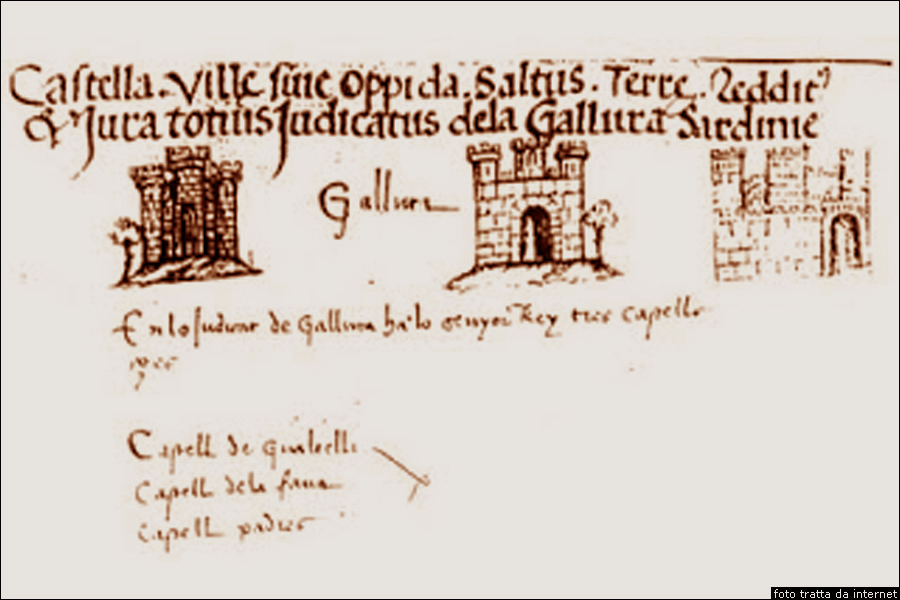 Castella. Ville sive Oppida. Saltus. Terre. Reddit⁹
& Jura totius Judicatus dela Gallura Sardinie
Gallura
En lo Judicat de Gallura ha lo senyor Rey tres Capells
Capell de
Capell dela fava
Capell padres
foto tratta da internet